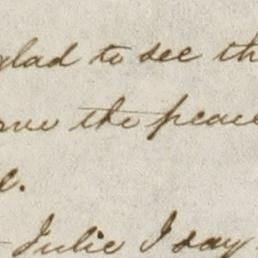 glad to see th
me the peace
e.
Julie I say